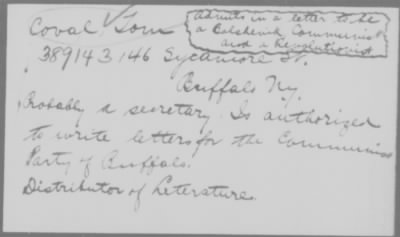 Coval Tom
admits in a letter to be
a Bolshevik Communist
and a Revolutionist.
389143, 146 Sycamore St.
Buffalo Ny.
Probably a secretary. Is authorized
to write letters for the Communist
Party of Buffalo.
Distributor of Leterature.